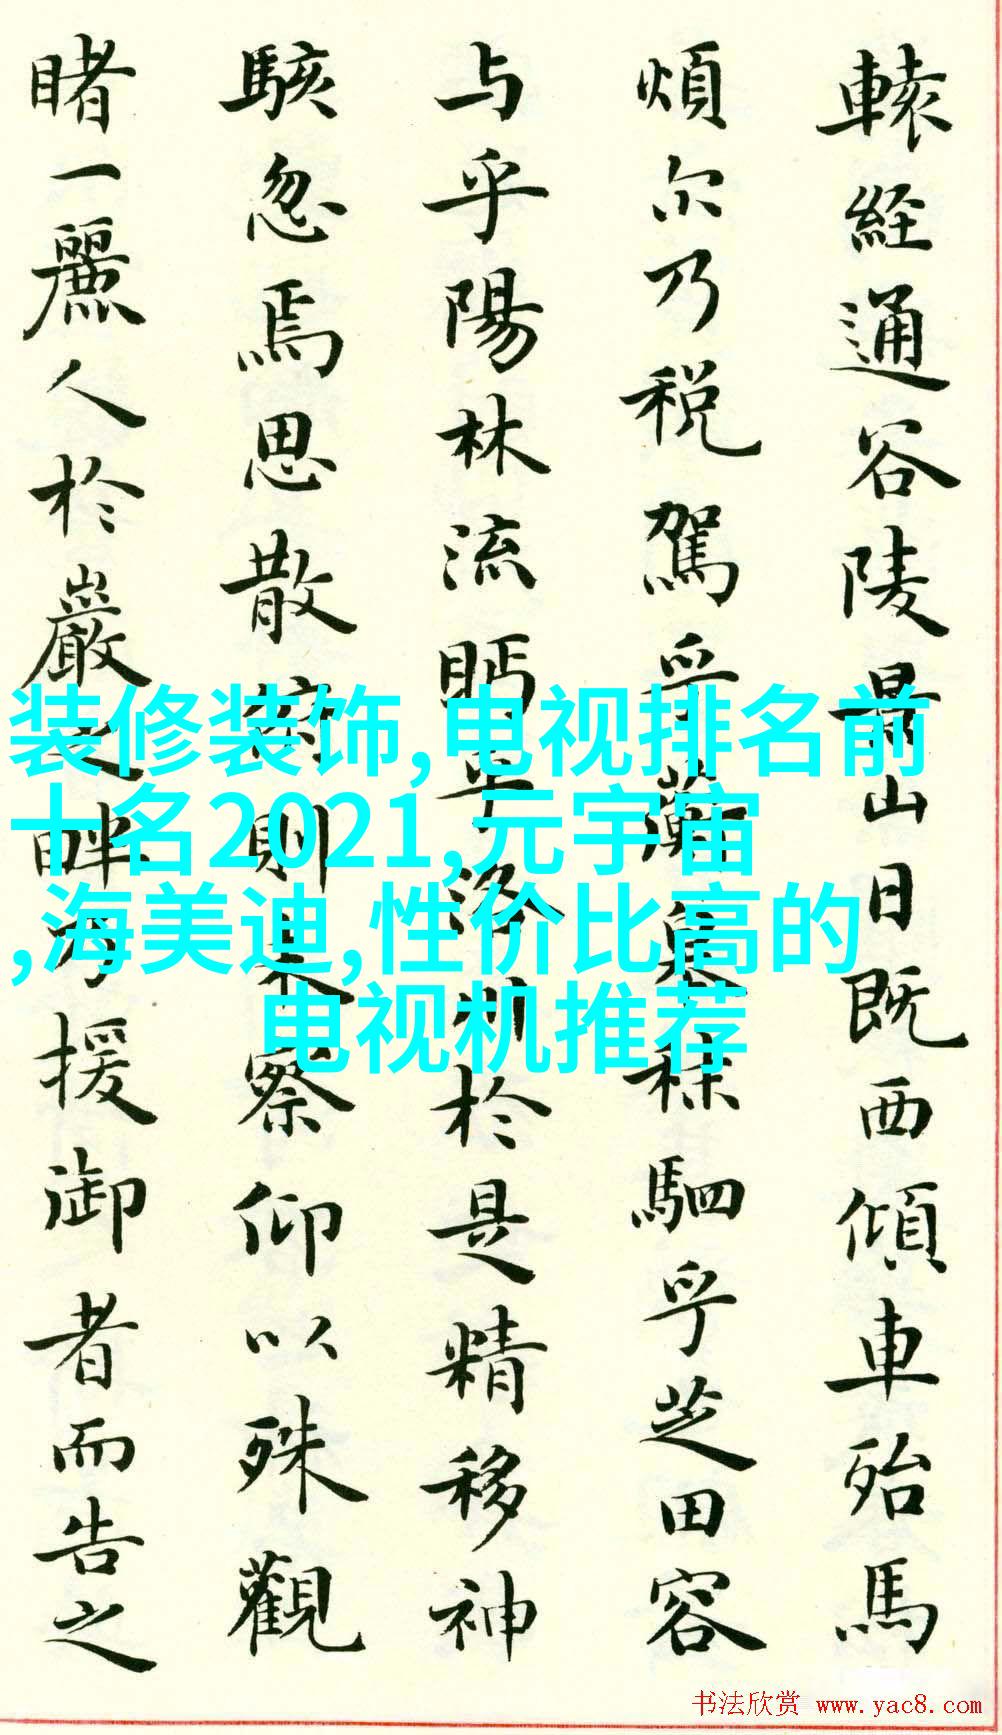 轅経通谷陵景山日既西傾車殆馬
煩尔乃税駕乎蘅皋秣駟乎芝田容
与乎陽林流眄乎洛川於是精移神
駭忽焉思散俯則未察仰以殊觀
睹一麗人於巖之畔乃援御者而告之
装修装饰,电视排名前
十名2021,元宇宙
,海美迪,性价比高的
电视机推荐
书法欣赏 www.yac8.com